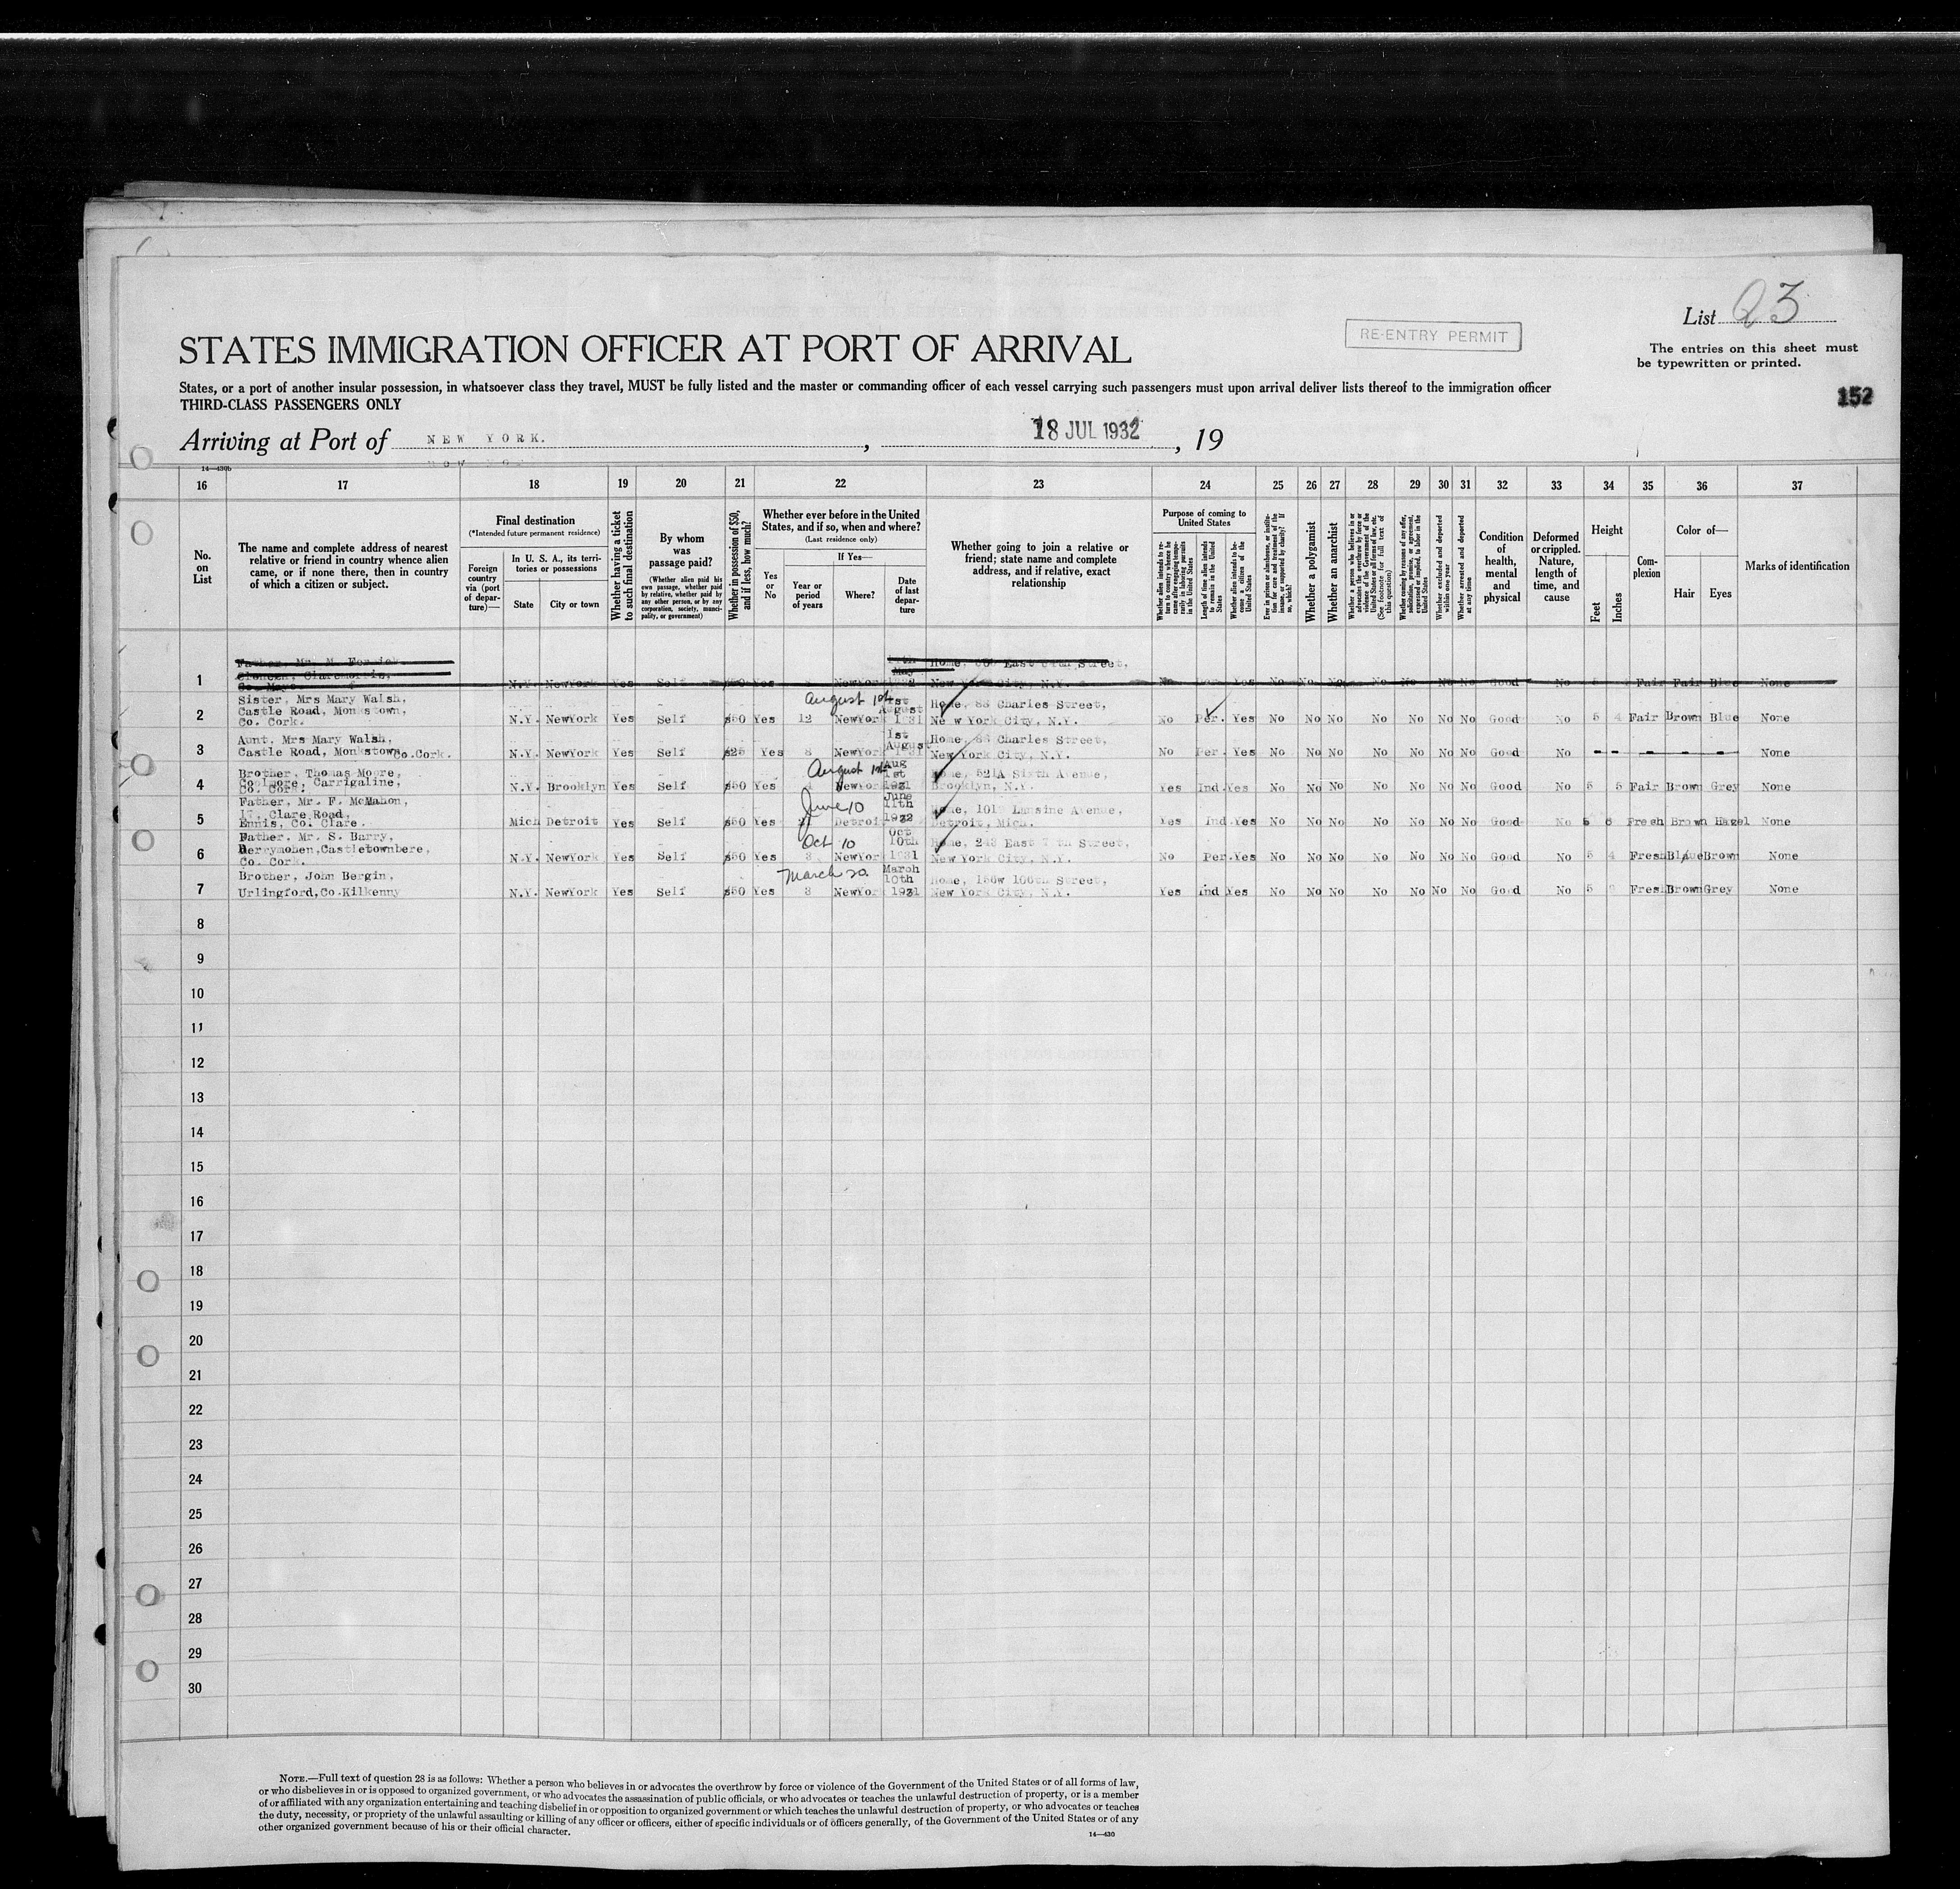 List 23
RE-ENTRY PERMIT
The entries on this sheet must
be typewritten or printed.
STATES IMMIGRATION OFFICER AT PORT OF ARRIVAL
States, or a port of another insular possession, in whatsoever class they travel, MUST be fully listed and the master or commanding officer of each vessel carrying such passengers must upon arrival deliver lists thereof to the immigration officer
THIRD-CLASS PASSENGERS ONLY
152
Arriving at Port of NEW YORK. , 18 JUL 1932 , 19
14—430b
16 17 18 19 20 21 22 23 24 25 26 27 28 29 30 31 32 33 34 35 36 37
No. on List
The name and complete address of nearest relative or friend in country whence alien came, or if none there, then in country of which a citizen or subject.
Final destination
(*Intended future permanent residence)
Foreign country via (port of departure)—
In U. S. A., its territories or possessions
State
City or town
Whether having a ticket to such final destination
By whom was passage paid?
(Whether alien paid his own passage, whether paid by relative, whether paid by any other person, or by any corporation, society, municipality, or government)
Whether in possession of $50, and if less, how much?
Whether ever before in the United States, and if so, when and where?
(Last residence only)
Yes or No
If Yes—
Year or period of years
Where?
Date of last departure
Whether going to join a relative or friend; state name and complete address, and if relative, exact relationship
Purpose of coming to United States
Whether alien intends to return to country whence he came after engaging temporarily in laboring pursuits in the United States
Length of time alien intends to remain in the United States
Whether alien intends to become a citizen of the United States
Ever in prison or almshouse, or institution for care and treatment of the insane, or supported by charity? If so, which?
Whether a polygamist
Whether an anarchist
Whether a person who believes in or advocates the overthrow by force or violence of the Government of the United States or all forms of law, etc. (See footnote for full text of this question)
Whether coming by reasons of any offer, solicitation, promise, or agreement, expressed or implied, to labor in the United States
Whether excluded and deported within one year
Whether arrested and deported at any time
Condition of health, mental and physical
Deformed or crippled. Nature, length of time, and cause
Height
Feet
Inches
Complexion
Color of—
Hair
Eyes
Marks of identification
1 Father, Mr. M.
Claremorris,
Co. Mayo N.Y. NewYork Yes Self $50 Yes NewYork May Home, East Street, New York City, N.Y. No Yes No No No No No No No Good No 5 Fair Fair Blue None
2 Sister, Mrs Mary Walsh,
Castle Road, Monkstown,
Co. Cork. N.Y. NewYork Yes Self $50 Yes 12 August 1st NewYork 1st August 1931 Home, 88 Charles Street, New York City, N.Y. No Per. Yes No No No No No No No Good No 5 4 Fair Brown Blue None
3 Aunt, Mrs Mary Walsh,
Castle Road, Monkstown Co.Cork. N.Y. NewYork Yes Self $25 Yes 8 NewYork 1st August 1931 Home, 88 Charles Street, New York City, N.Y. No Per. Yes No No No No No No No Good No - - - - - None
4 Brother, Thomas Moore,
Coolmore, Carrigaline,
Co. Cork. N.Y. Brooklyn Yes Self $50 Yes August 1st NewYork Aug 1st 1931 Home, 521A Sixth Avenue, Brooklyn, N.Y. Yes Ind. Yes No No No No No No No Good No 5 5 Fair Brown Grey None
5 Father, Mr. F. McMahon,
Clare Road,
Ennis, Co. Clare. Mich Detroit Yes Self $50 Yes June 10 Detroit June 11th 1932 Home, Lansine Avenue, Detroit, Mich. Yes Ind Yes No No No No No No No Good No 5 6 Fresh Brown Hazel None
6 Father, Mr. S. Barry,
Derrymohen, Castletownbere,
Co. Cork. N.Y. NewYork Yes Self $50 Yes 3 Oct 10 NewYork Oct 10th 1931 Home, 243 East Street, New York City, N.Y. No Per. Yes No No No No No No No Good No 5 4 Fresh Blue Brown None
7 Brother, John Bergin,
Urlingford, Co.Kilkenny N.Y. NewYork Yes Self $50 Yes 3 March 20 NewYork March 10th 1931 Home, 156w 106th Street, New York City, N.Y. Yes Ind Yes No No No No No No No Good No 5 Fresh Brown Grey None
8
9
10
11
12
13
14
15
16
17
18
19
20
21
22
23
24
25
26
27
28
29
30
NOTE.—Full text of question 28 is as follows: Whether a person who believes in or advocates the overthrow by force or violence of the Government of the United States or of all forms of law,
or who disbelieves in or is opposed to organized government, or who advocates the assassination of public officials, or who advocates or teaches the unlawful destruction of property, or is a member
of or affiliated with any organization entertaining and teaching disbelief in or opposition to organized government or which teaches the unlawful destruction of property, or who advocates or teaches
the duty, necessity, or propriety of the unlawful assaulting or killing of any officer or officers, either of specific individuals or of officers generally, of the Government of the United States or of any
other organized government because of his or their official character.
14—430